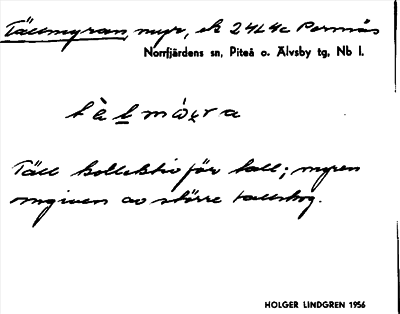 Tällmyran, myr, ek 24L4c Pernäs
Norrfjärdens sn, Piteå o. Älvsby tg, Nb l.
tàlmýra
Täll kollektiv för tall; myren
omgiven av större tallskog.
HOLGER LINDGREN 1956